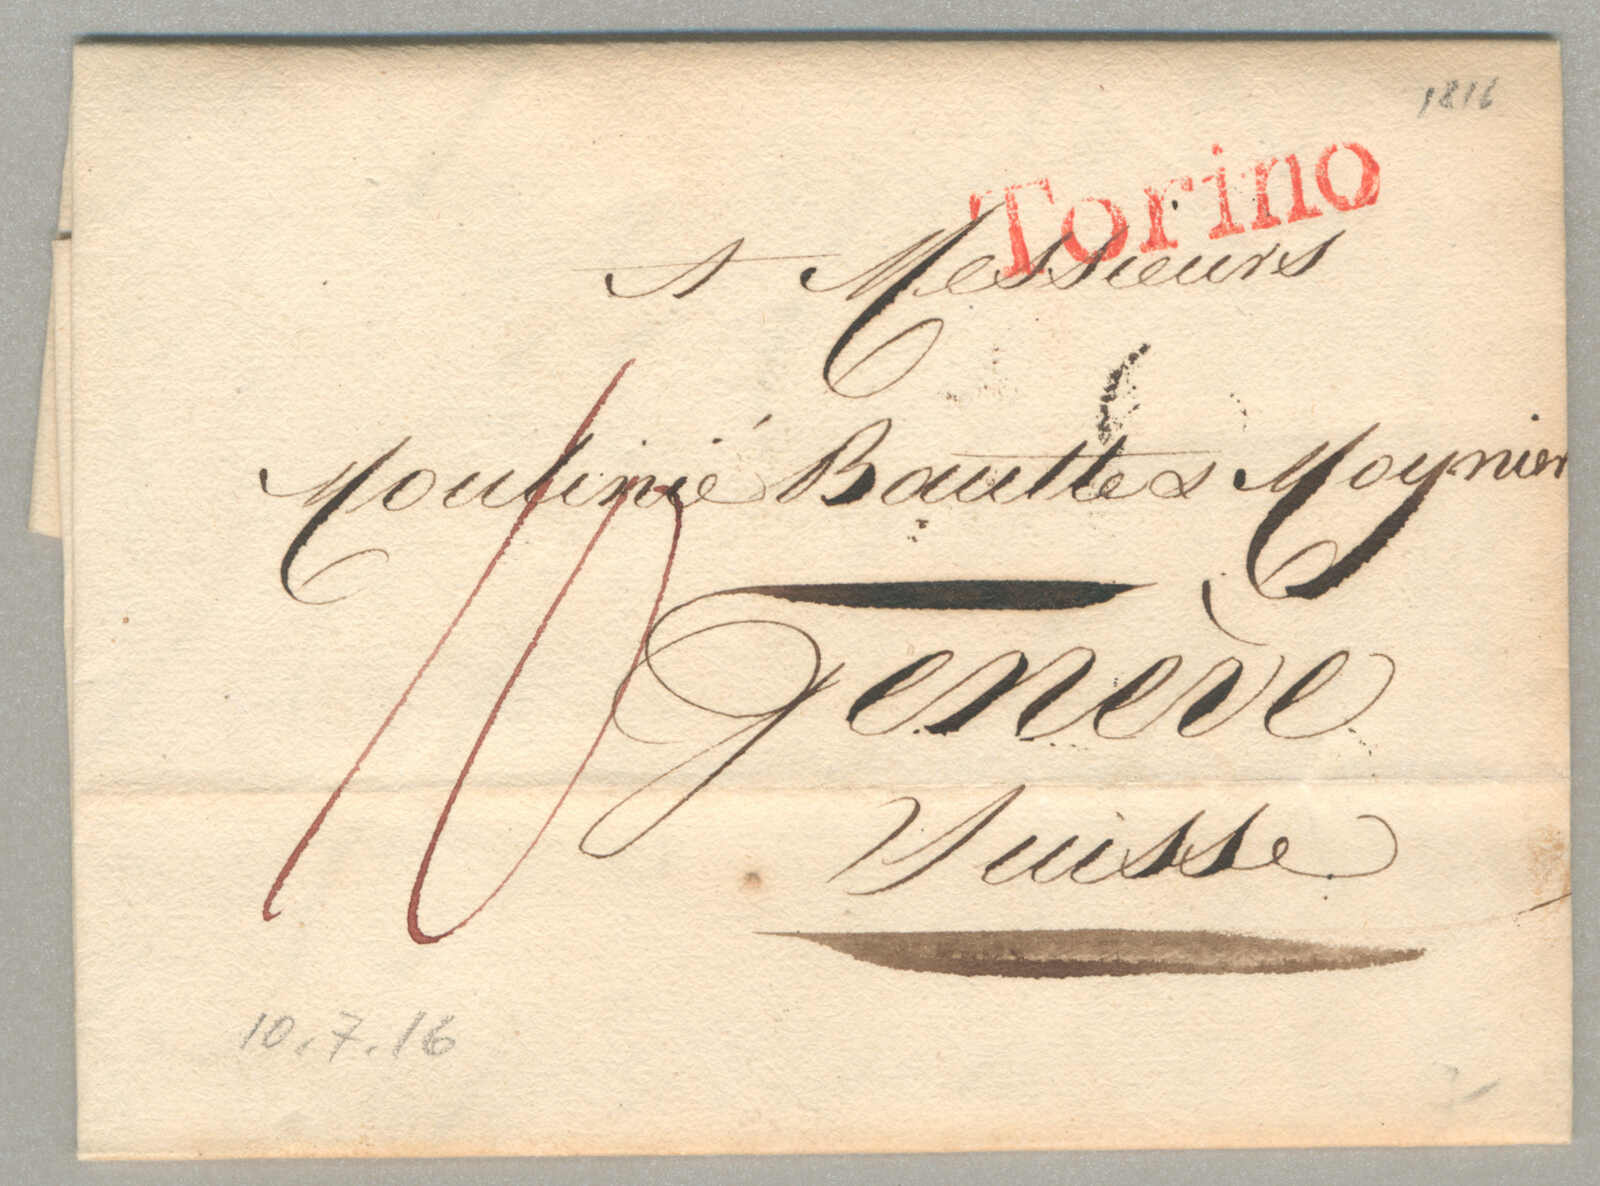 1816
Torino
A Messieurs
Moulinié Bautte & Moynier
Genève
Suisse
10
10.7.16